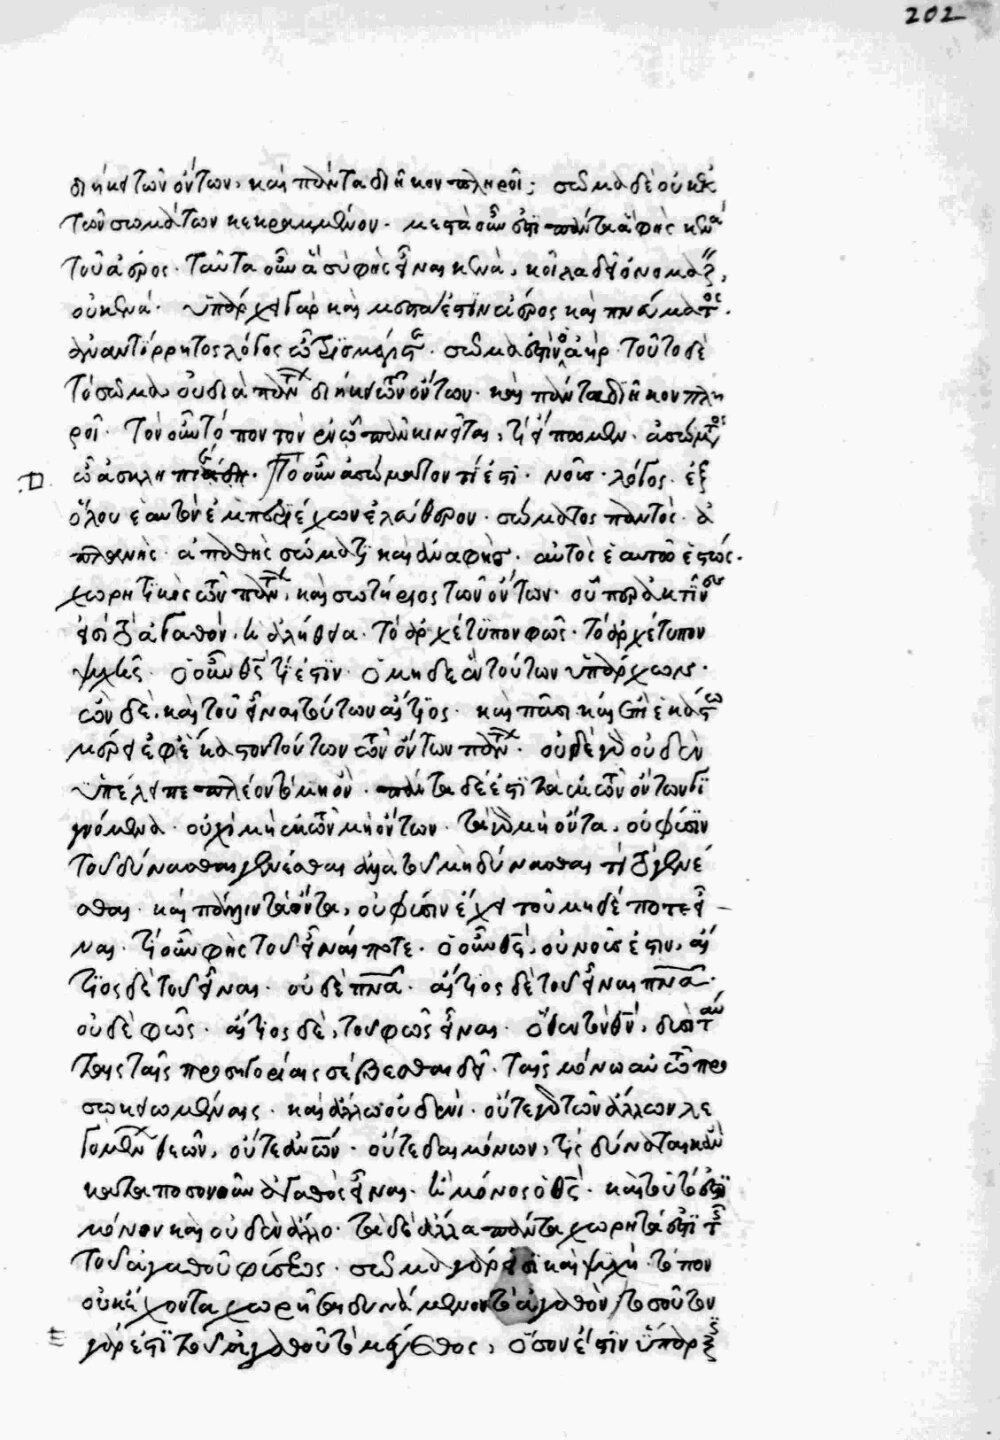 202
διήκει τῶν ὄντων, καὶ πάντα διῆκον πληροῖ; σῶμα δὲ οὐκ ἐκ
τῶν σωμάτων κεκραμμένον. μεστὰ οὖν ἐστὶ πάντα ἃ φῂς κενὰ
τοῦ ἀέρος. ταῦτα οὖν ἃ σὺ φῂς εἶναι κενά, κοῖλα δεῖ ὀνομάζειν,
οὐ κενά. ὑπάρξει γὰρ καὶ μεστά ἐστιν ἀέρος καὶ πνεύματος.
ἀναντίρρητος λόγος ὦ τρισμέγιστε. σῶμα ἐστὶν ὁ ἀήρ. τοῦτο δὲ
τὸ σῶμα ὃ διὰ πάντων διήκει τῶν ὄντων. καὶ πάντα διῆκον πλη
ροῖ. τὸν οὖν τόπον τὸν ἐν ᾧ τὸ πᾶν κινεῖται, τί εἴπομεν. ἀσώματον
ὦ ἀσκληπιέ. τὸ οὖν ἀσώματον τί ἐστι. νοῦς. λόγος. ἐξ
ὅλου ἑαυτὸν ἐμπεριέχων ἐλεύθερον. σώματος παντὸς. ἀ
πλανής. ἀπαθὴς σώματι καὶ ἀναφής. αὐτὸς ἑαυτοῦ ἑστώς.
χωρητικὸς τῶν πάντων, καὶ σωτήριος τῶν ὄντων. οὗ ὥσπερ ἀκτῖνες
εἰσὶ τὸ ἀγαθόν. ἡ ἀλήθεια. τὸ ἀρχέτυπον φῶς. τὸ ἀρχέτυπον
ψυχῆς. ὁ οὖν θς τί ἐστιν. ὁ μηδὲ ἓν τούτων ὑπάρχων.
ὢν δὲ, καὶ τοῦ εἶναι τούτων αἴτιος. καὶ πᾶσι καὶ ἑνὶ ἑκάστῳ
μέρει ἐφ' ἕκαστον τούτων τῶν ὄντων πάντων. οὐδὲ γὰρ οὐδὲν
ὑπέλειπε πλέον τὸ μὴ ὄν. πάντα δέ ἐστι τὰ ἐκ τῶν ὄντων γι
νόμενα. οὐχὶ μὴ ἐκ τῶν μὴ ὄντων. τὰ γὰρ μὴ ὄντα, οὐ φύσιν
τοῦ δύνασθαι γενέσθαι ἀλλὰ τοῦ μὴ δύνασθαι τι γενέ
σθαι. καὶ πάλιν τὰ ὄντα, οὐ φύσιν ἔχει τοῦ μηδέποτε εἶ
ναι. τί οὖν φῂς τοῦ εἶναι ποτε. ὁ οὖν θς, οὐ νοῦς ἐστιν, αἴ
τιος δὲ τοῦ εἶναι. οὐδὲ πνα. αἴτιος δὲ τοῦ εἶναι πνα.
οὐδὲ φῶς. αἴτιος δὲ, τοῦ φῶς εἶναι. ὅθεν τὸν θν, δυσὶ ταύ
ταις ταῖς προσηγορίαις σέβεσθαι δεῖ. ταῖς μόνῳ αὐτῷ προ
σωκειωμέναις. καὶ ἄλλῳ οὐδενί. οὔτε γὰρ τῶν ἄλλων λε
γομένων θεῶν, οὔτε ἀνων. οὔτε δαιμόνων, τίς δύναται κἂν
κατὰ ποσονοῦν ἀγαθὸς εἶναι. ἢ μόνος ὁ θς. καὶ τοῦτό ἐστι
μόνον καὶ οὐδὲν ἄλλο. τὰ δὲ ἄλλα πάντα χωρητά ἐστι τῆς
τοῦ ἀγαθοῦ φύσεως. σῶμα γάρ εἰσι καὶ ψυχὴ. τόπον
οὐκ ἔχοντα χωρῆσαι δυνάμενον τὸ ἀγαθόν. τοσοῦτον
γάρ ἐστι τοῦ ἀγαθοῦ τὸ μέγεθος, ὅσον ἐστὶν ὕπαρξις